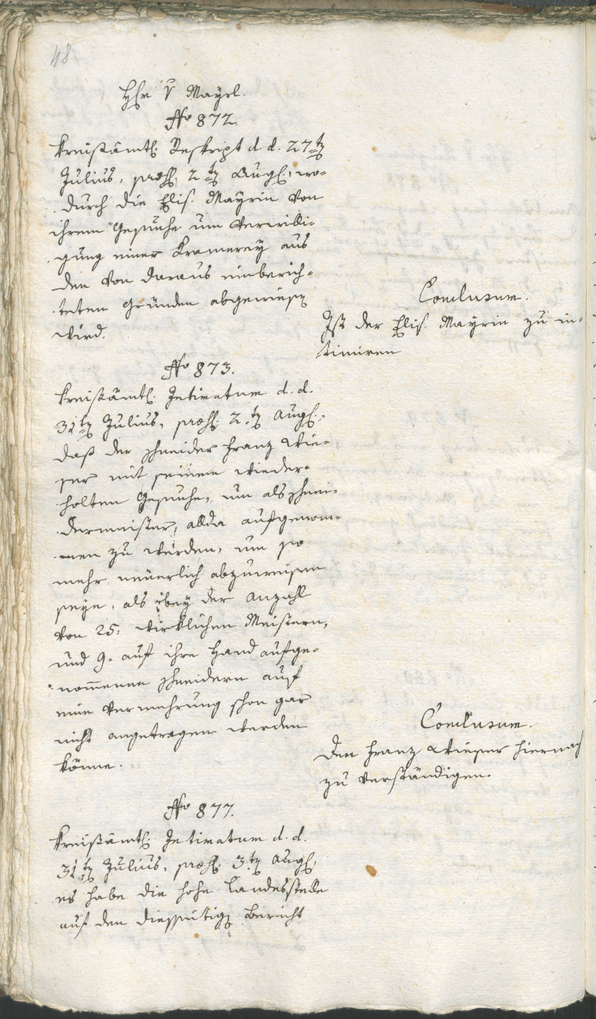 48
H. v. Mayrl.
No 872.
Kreisämtl. Reskript d. d. 27ten
Julius, praes. 2ten Aug., wo-
durch die Elis. Mayrin von
ihrem Gesuche um Verwilli-
gung einer Kramerey aus
den von daraus einberich-
teten Gründen abgewiesen
wird.
Conclusum.
Ist der Elis. Mayrin zu in-
timiren
No 873.
Kreisämtl. Intimatum d. d.
31ten Julius, praes. 2ten Aug.,
daß der Schneider Franz Wie-
ser mit seinem wieder-
holten Gesuche, um als Schnei-
dermeister, allda aufgenom-
men zu werden, um so
mehr neuerlich abzuweisen
seye, als obey der Anzahl
von 25. wirklichen Meistern,
und 9. auf ihre Hand aufge-
nommene Schneidern auf
eine Vermehrung schon gar
nicht angetragen werden
könne.
Conclusum.
Den Franz Wieser hiernach
zu verständigen.
No 877.
Kreisämtl. Intimatum d. d.
31ten Julius, praes. 3ten Aug.,
es habe die hohe Landesstelle
auf den diesseitigen Bericht